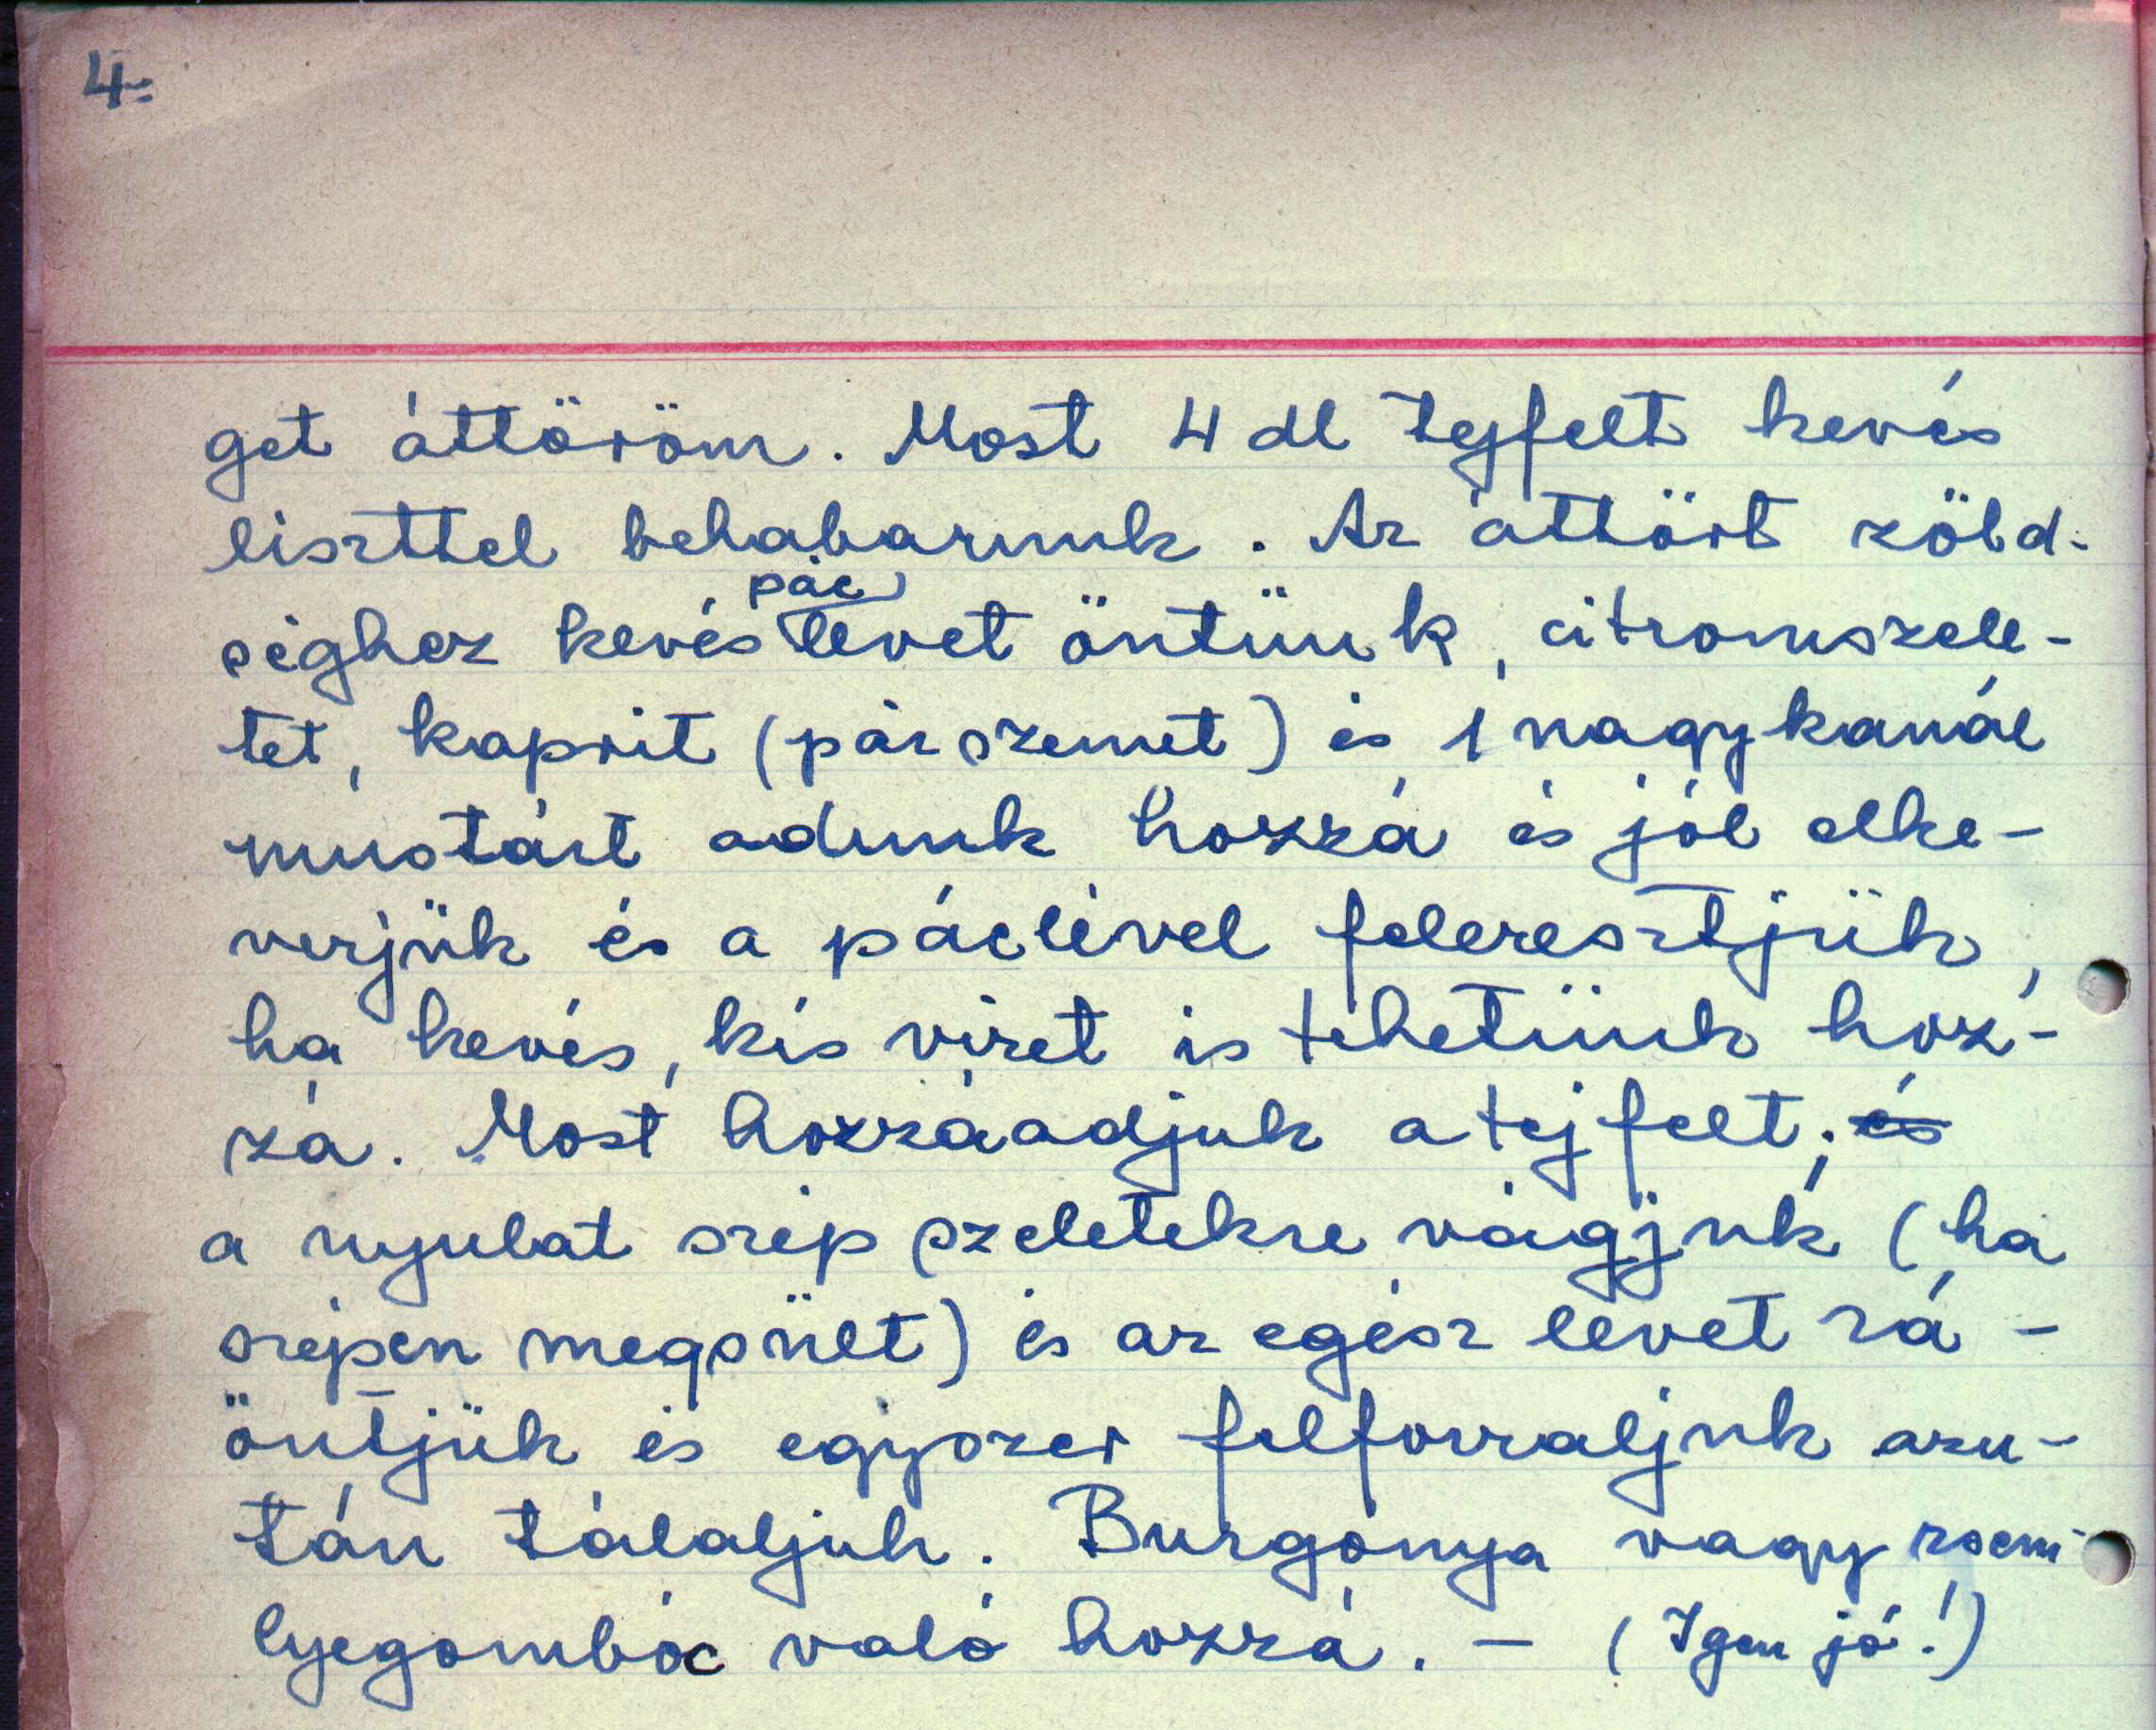 4.
get áttöröm. Most 4 dl tejfelt kevés
liszttel behabarunk. Az áttört zöld-
pác
séghez kevés levet öntünk, citromszele-
tet, kaprit (pár szemet) és 1 nagykanál
mustárt adunk hozzá és jól elke-
verjük és a páclével feleresztjük,
ha kevés, kis vizet is tehetünk hoz-
zá. Most hozzáadjuk a tejfelt; és
a nyulat szép szeletekre vágjuk (ha
szépen megsült) és az egész levet rá-
öntjük és egyszer felforraljuk azu-
tán tálaljuk. Burgonya vagy zsem-
lyegombóc való hozzá. - (Igen jó!)